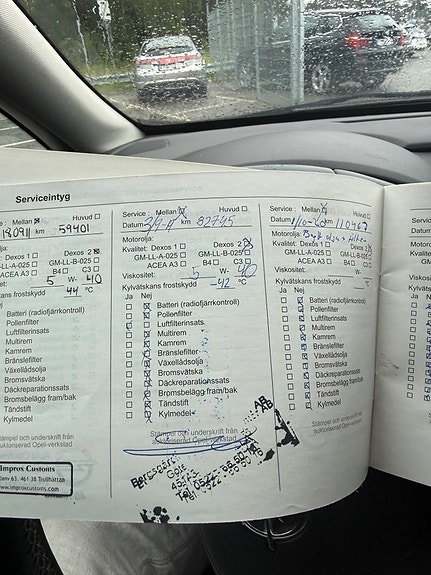 Serviceintyg
Mellan Huvud
59401
Dexos 1 Dexos 2
LL-A-025 GM-LL-B-025
ACEA A3 B4 C3
5 W- 40
kens frostskydd 44 °C
Nej
Batteri (radiofjärrkontroll)
Pollenfilter
Luftfilterinsats
Multirem
Kamrem
Bränslefilter
Växellådsolja
Bromsvätska
Däckreparationssats
Bromsbelägg fram/bak
Tändstift
Kylmedel
Stämpel och underskrift från
auktoriserad Opel-verkstad
Improx Customs
461 38 Trollhättan
www.improxcustoms.com
Service: Mellan Huvud
Datum km 82745
Motorolja:
Kvalitet: Dexos 1 Dexos 2
GM-LL-A-025 GM-LL-B-025
ACEA A3 B4 C3
Viskositet: 5 W- 40
Kylvätskans frostskydd -42 °C
Ja Nej
Batteri (radiofjärrkontroll)
Pollenfilter
Luftfilterinsats
Multirem
Kamrem
Bränslefilter
Växellådsolja
Bromsvätska
Däckreparationssats
Bromsbelägg fram/bak
Tändstift
Kylmedel
Stämpel och underskrift från
auktoriserad Opel-verkstad
Service: Mellan Huvud
Datum km
Motorolja:
Kvalitet: Dexos 1 Dexos 2
GM-LL-A-025 GM-LL-B-025
ACEA A3 B4 C3
Viskositet: W-
Kylvätskans frostskydd °C
Ja Nej
Batteri (radiofjärrkontroll)
Pollenfilter
Luftfilterinsats
Multirem
Kamrem
Bränslefilter
Växellådsolja
Bromsvätska
Däckreparationssats
Bromsbelägg fram/bak
Tändstift
Kylmedel
Stämpel och underskrift från
auktoriserad Opel-verkstad